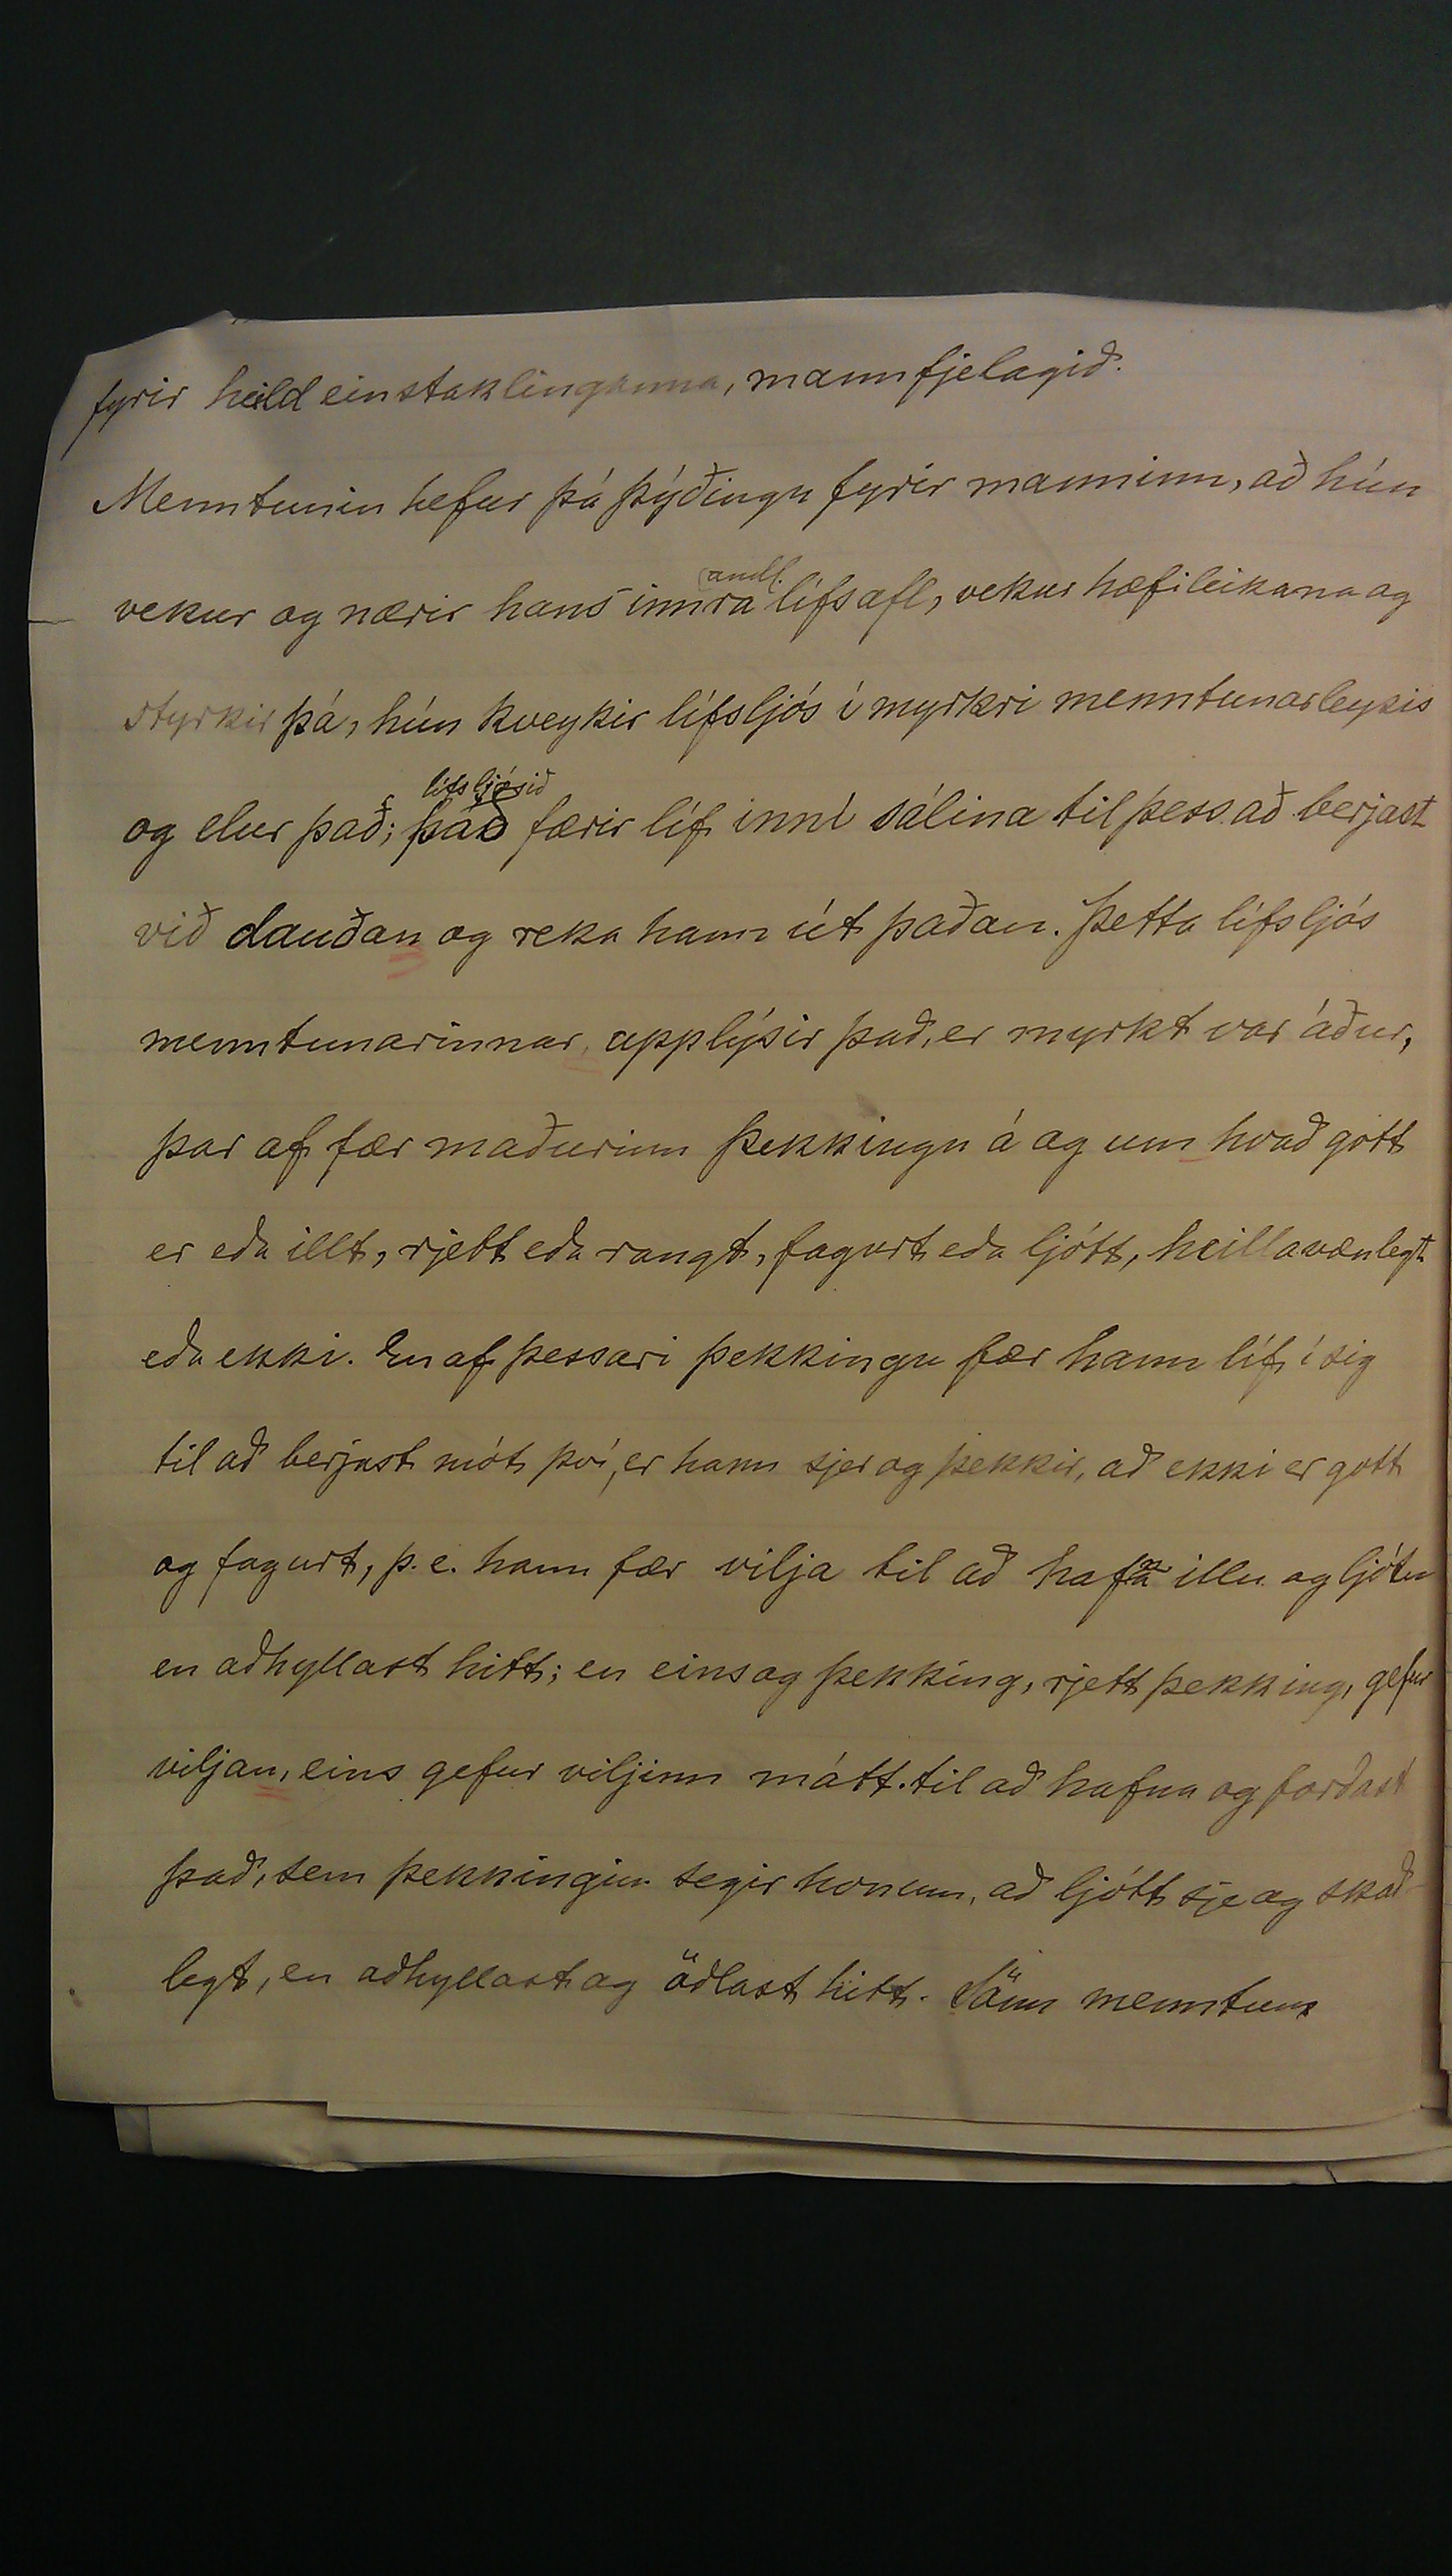 fyrir heild einstaklinganna, mannfjelagið.
Menntunin hefur þá þýðingu fyrir manninn, að hún
andl.
vekur og nærir hans innra lífsafl, vekur hæfileikana og
styrkir þá, hún kveykir lífsljós í myrkri menntunarleysis
lífsljósið
og elur það; það færir líf inní sálina til þess að berjast
við dauðan og reka hann út þaðan. Þetta lífsljós
menntunarinnar, upplýsir það, er myrkt var áður,
þar af fær maðurinn þekkingu á og um hvað gott
er eða illt, rjett eða rangt, fagurt eða ljótt, heillavænlegt
eða ekki. En af þessari þekkingu fær hann líf í sig
til að berjast mót því, er hann sjer og þekkir, að ekki er gott
og fagurt, þ.e. hann fær vilja til að hafna illu og ljótu
en aðhyllast hitt; en eins og þekking, rjett þekking, gefur
viljan, eins gefur viljinn mátt til að hafna og forðast
það, sem þekkingin segir honum, að ljótt sje og skað-
legt, en aðhyllast og öðlast hitt. Sönn menntun